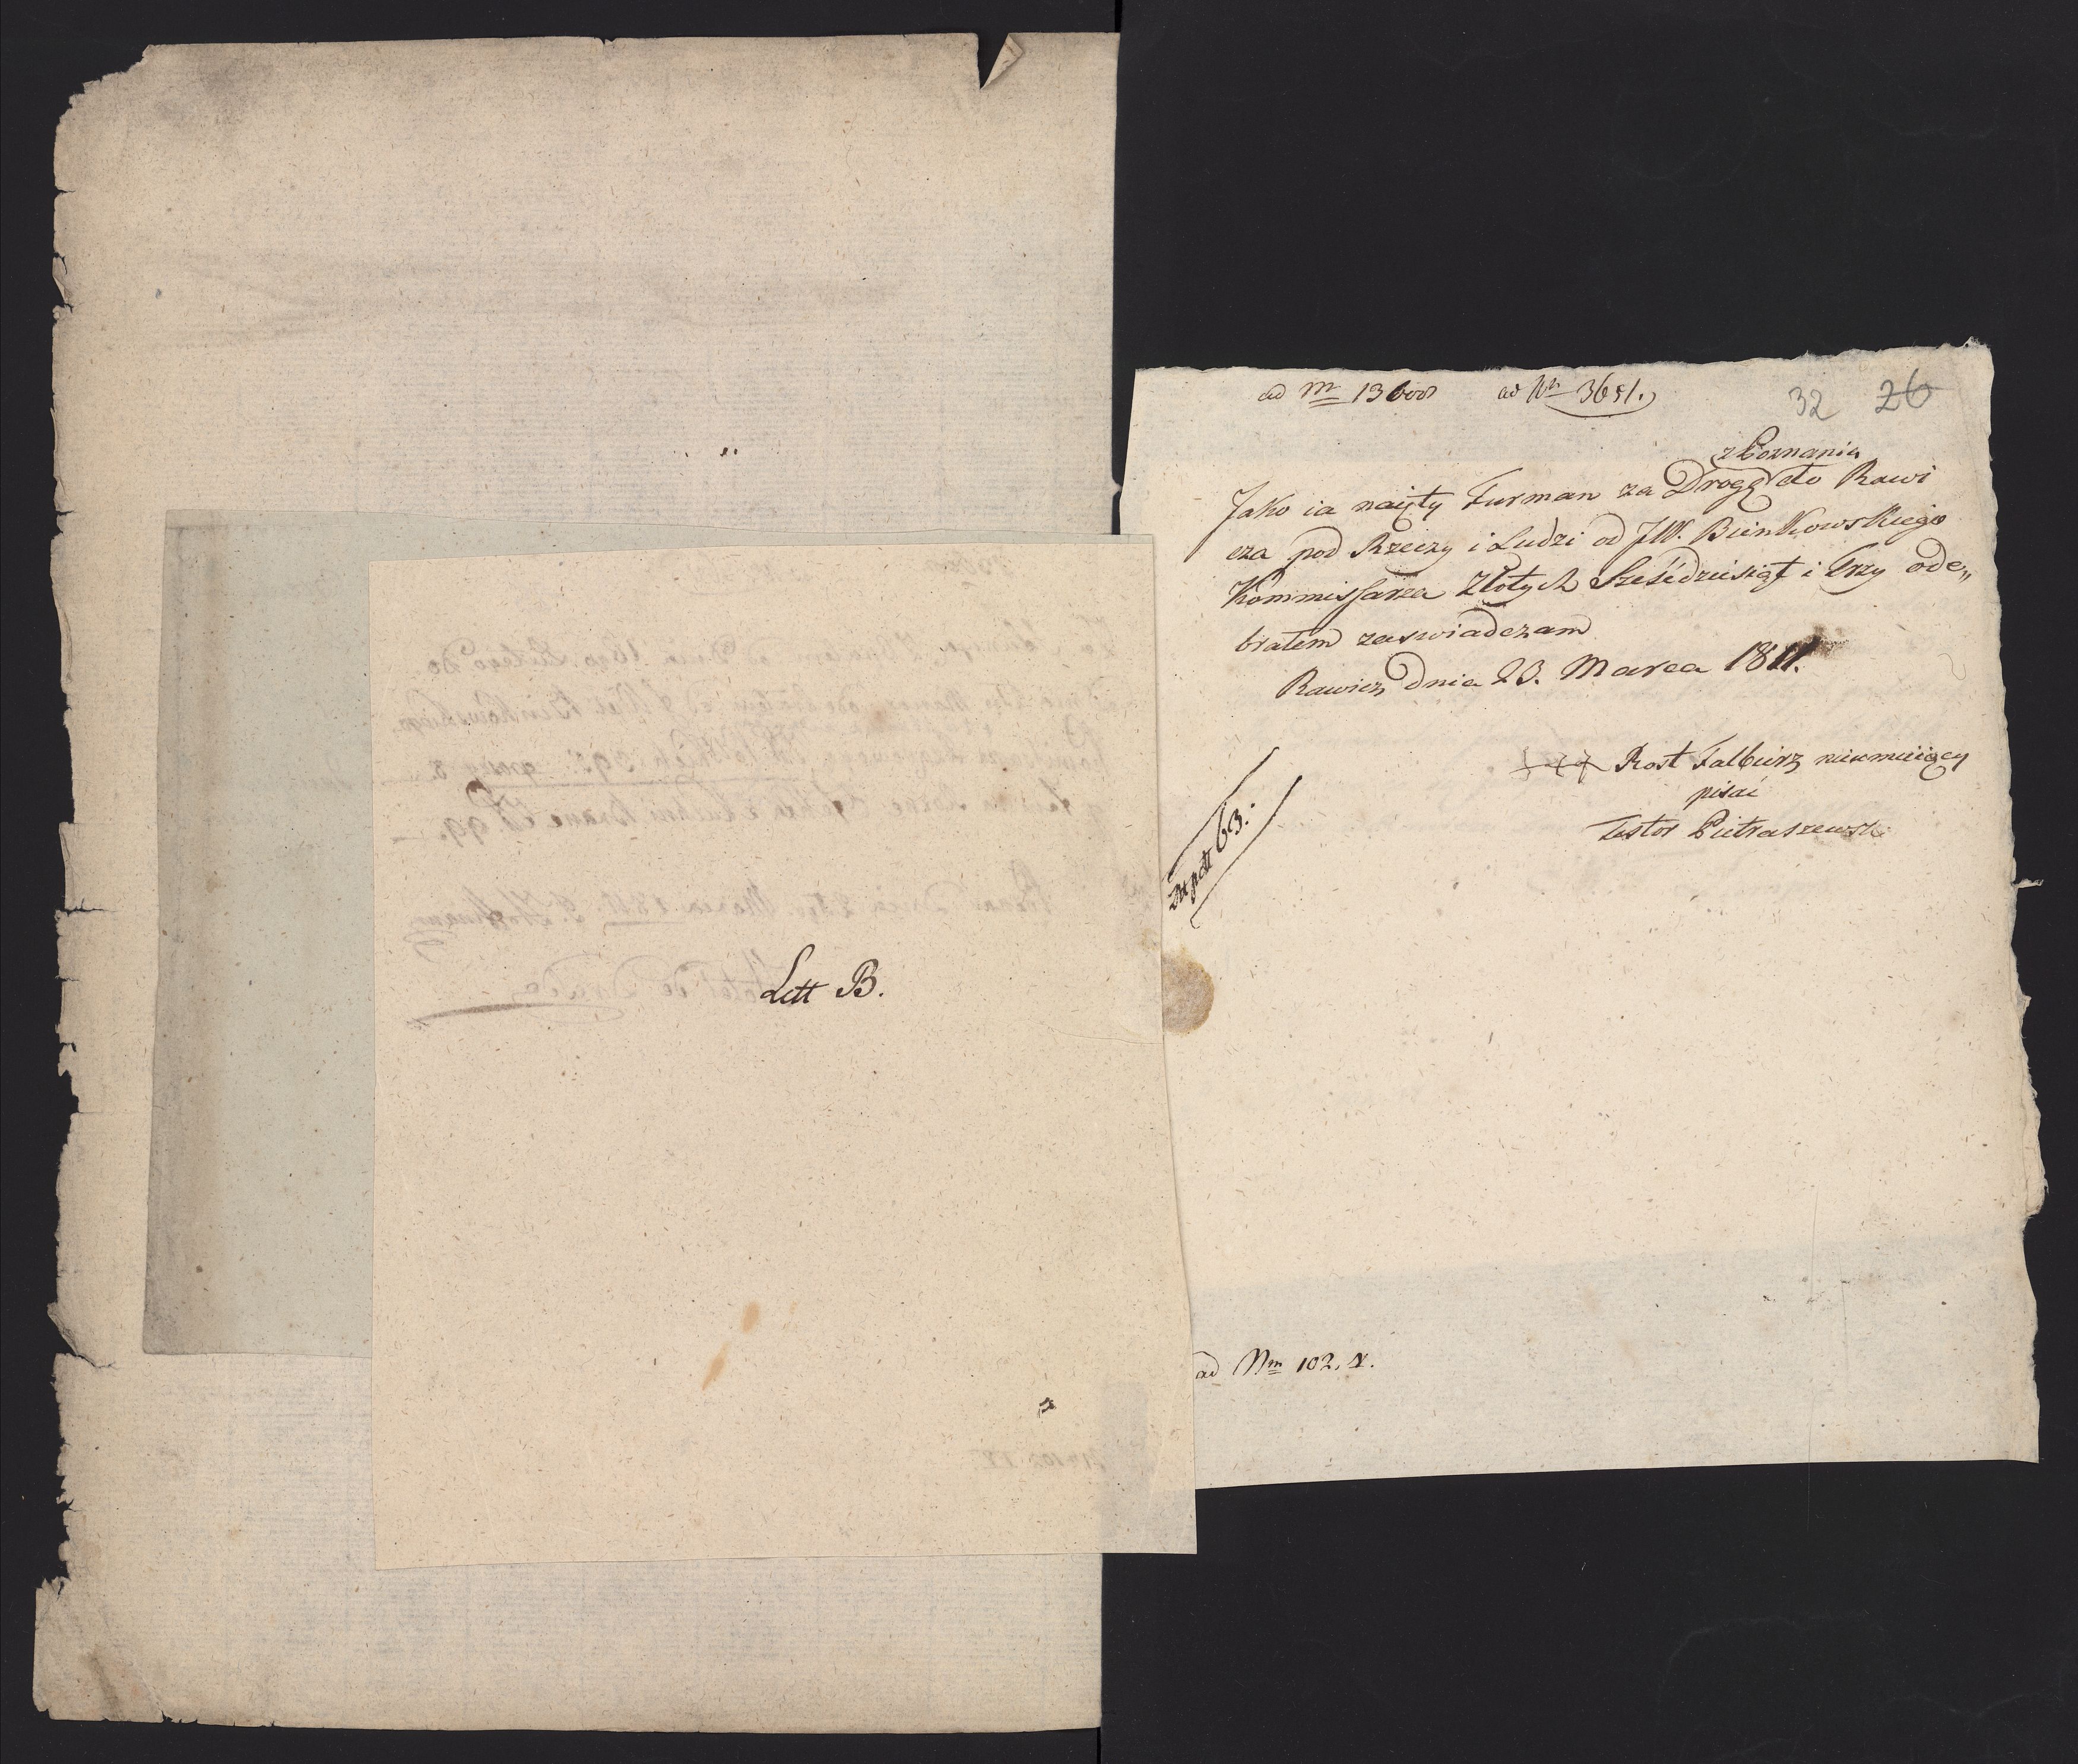 Lett B.
ad Nr 13600 ad Nr 3651.
32 26
z Poznania
Jako ia naięty Furman za Drogę do Rawi
cza pod Rzeczy i Ludzi od JW. Bienkowskiego
Kommissarza Złotych Sześćdziesiąt i Trzy ode„
brałem zaswiadczam
Rawicz dnia 23. Marca 1811.
+++ Rost Falbierz nieumieiący
pisać
Testor Pietraszewski
63:
ad Nm 102.